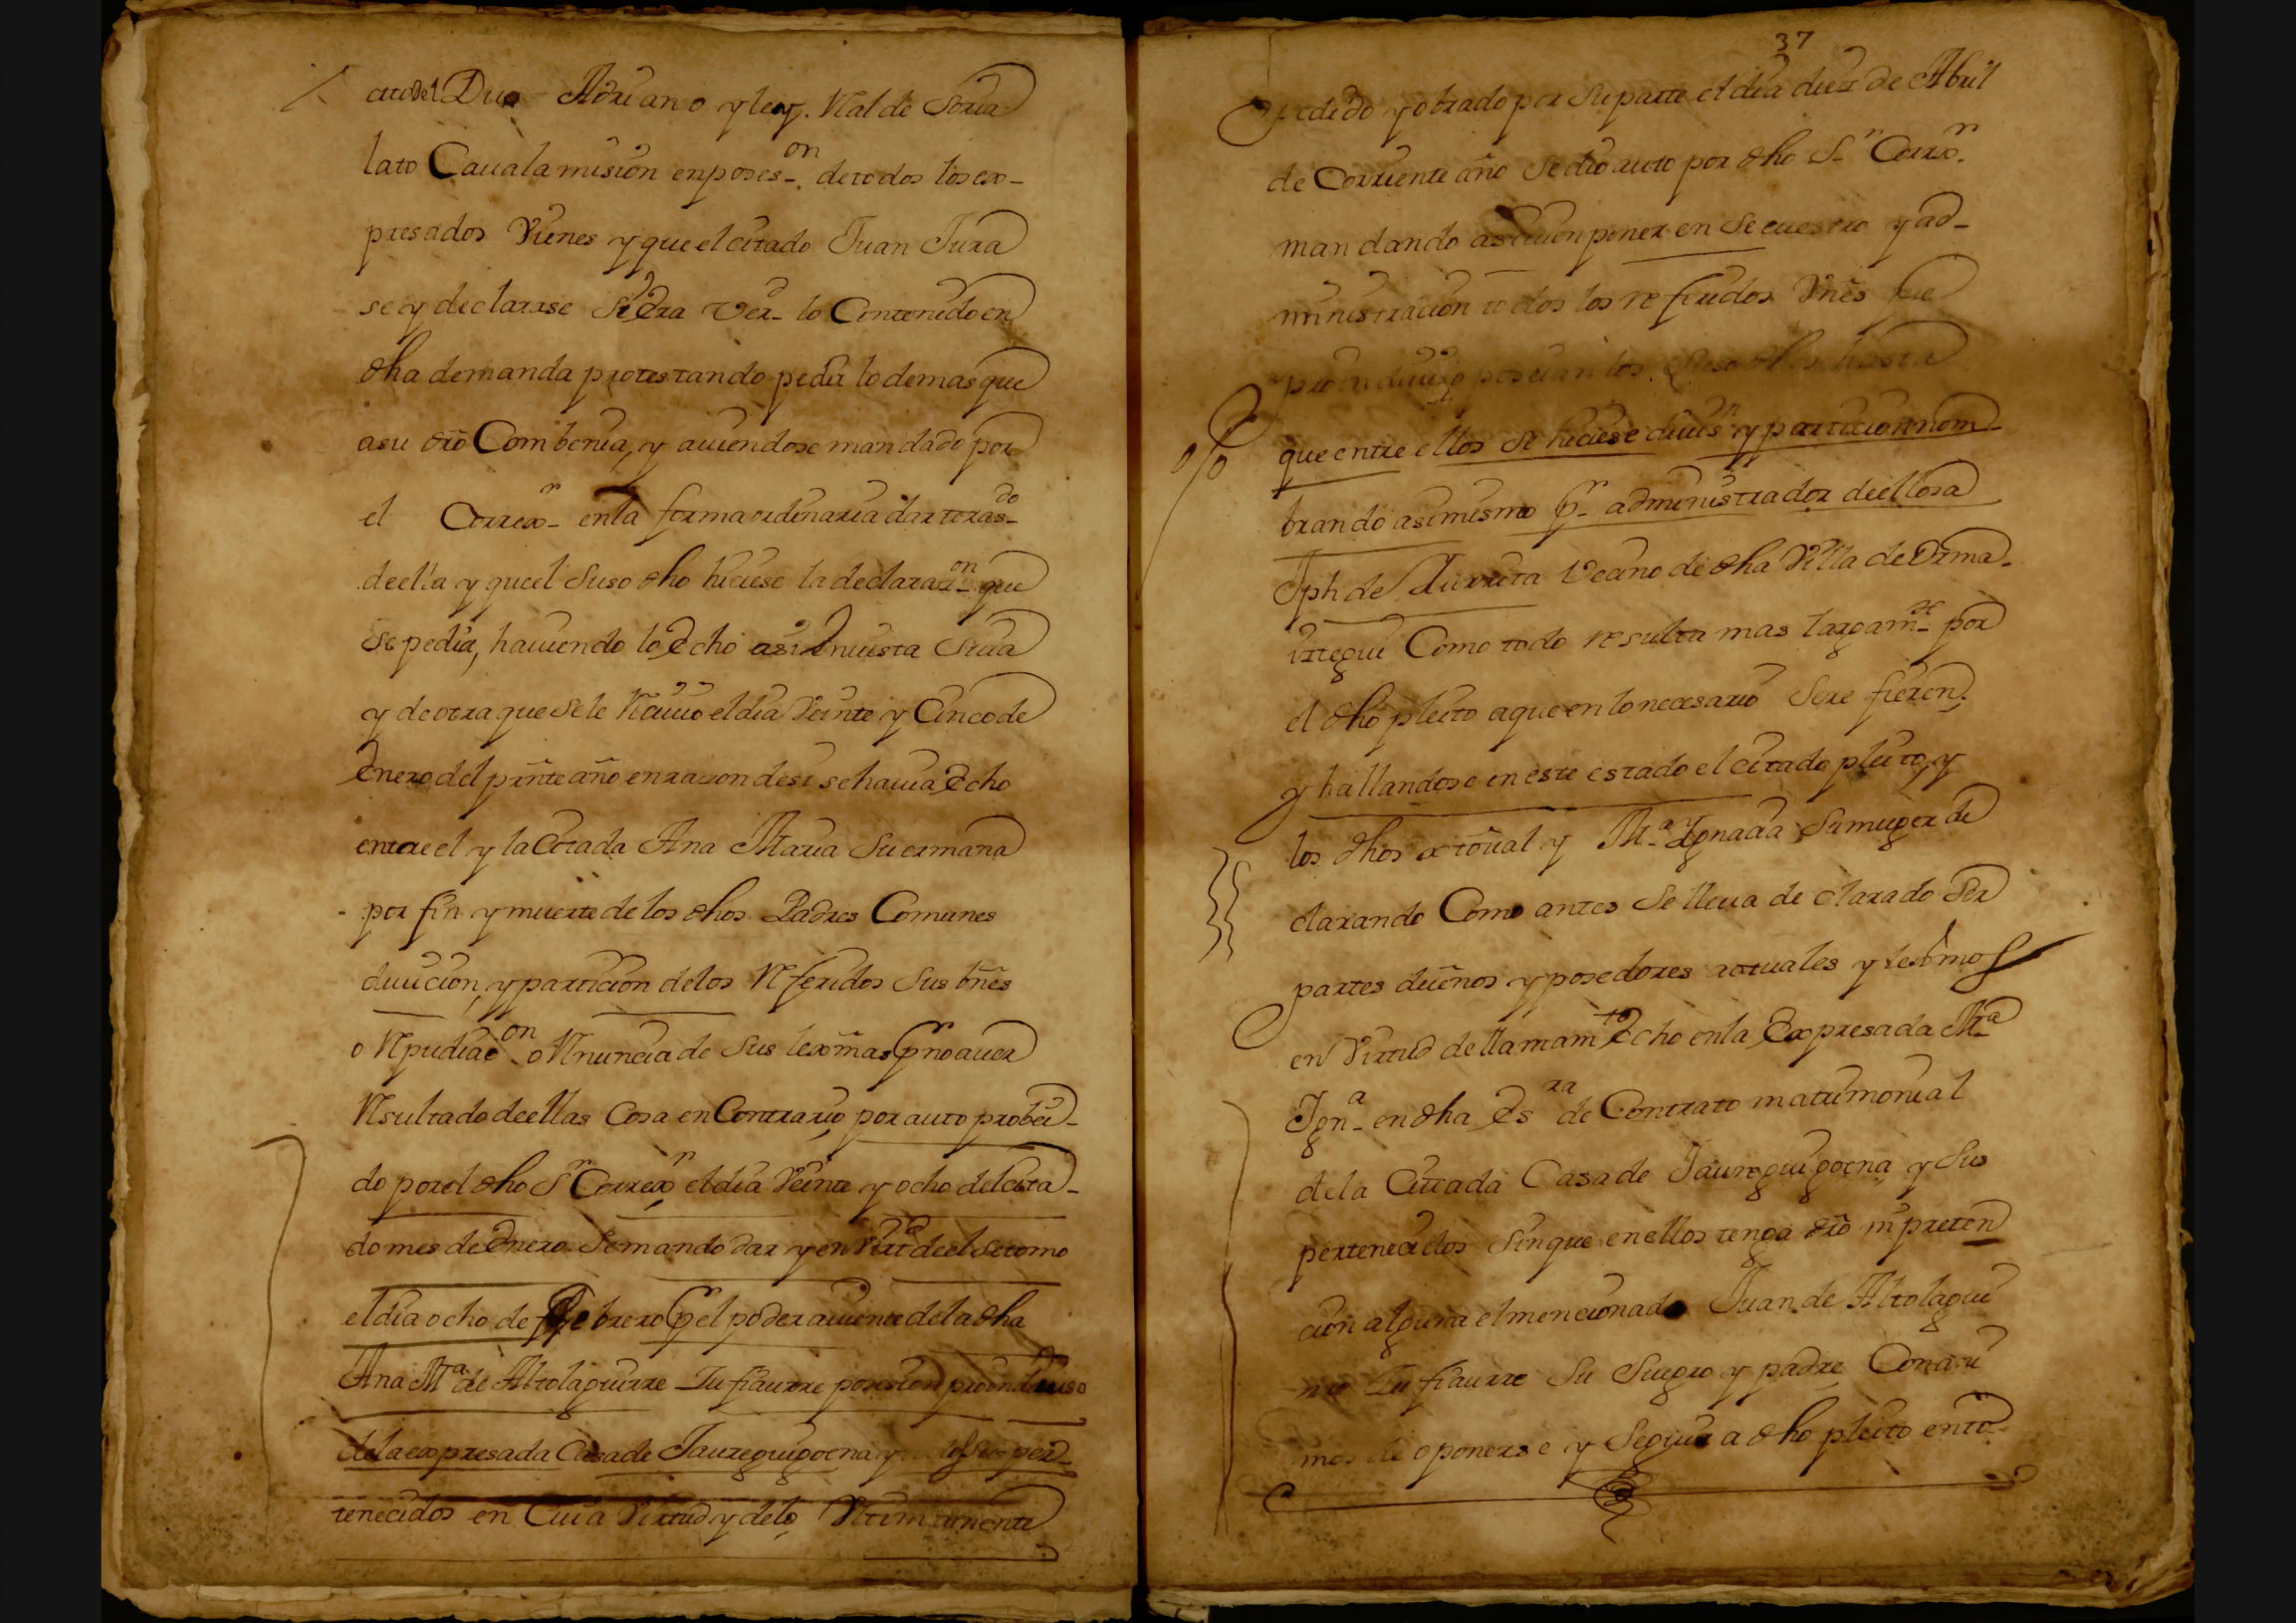 Adriano y ley. Rl de Soria
lato Caualamision enposes-on de todos los ex-
presados Vienes y que el citado Juan Jura
se y declarase lo Contenido en
dha demanda protestando pedia lo demas que
asu dro Combenia, y auiendose mandado por
el Correxr en la forma ordinaria dar trasdo
de ella y que el Suso dho hiciese la declaraon que
se pedia, hauiendo lo echo asi en uista Suia
y de otra que se le Reciuio el dia Veinte y Cinco de
Enero del pnte año en razon de si se hauia echo
entre el y la Citada Ana Maria Su ermana
por fin y muerte de los dhos Padres Comunes
diuicion, y particion de los Referidos Sus bnes
o Repudiacon o Renuncia de Sus lexmas pr no auer
Resultado de ellas Cosa en Contrario, por auto probei-
do por el dho Sr Correxr el dia Veinte y ocho del cita-
do mes de Enero Se mando dar y en Virtd de el se tomo
el dia ocho de febrero pr el poder auiente de la dha
Ana Ma de Altolaguirre Iufiaurre posesion proindiuiso
de la expresada Casa de Jaureguigoena y sus per-
tenecidos en Cuia Virtud y de lo Vltimamente
37
pedido y obrado por Su parte el dia diez de Abril
de Corriente año Se dio auto por dho Sr Correxr
mandando poner en Secuestro y ad-
ministracion todos los refiridos Vnes que
proindiuiso poseian los Suso dhos hasta
que entre ellos se hiciese diuisn y particion nom
brando asimismo pr administrador de ellos a
Jph de Vecino de dha Villa de Vrma-
Como todo resulta mas largamte por
el dho pleito a que en lo necesario Se refieren,
y hallandose en este estado el citado pleito, y
los dhos xtoual y Ma Ignacia Su muger de
clarando Como antes Se lleua declarado Ser
partes dueños y posedores actuales y lexmos
en Virtud de llamamto echo en la Expresada Ma
Igna en dha Esra de Contrato matrimonial
de la Citada Casa de Jaureguigoena, y Sus
pertenecidos Sin que en ellos tenga dro ni preten
cion alguna el mencionado Juan de Altolagui
rre Iufiaurre Su Suegro y padre Con ani
mo de oponerse y Seguir a dho pleito en to